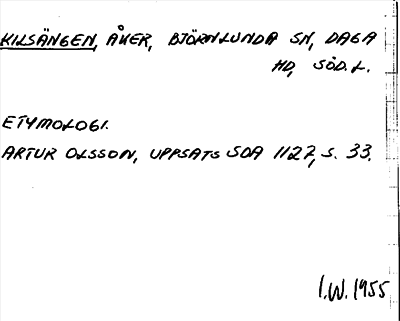 KILSÄNGEN, ÅKER, BJÖRNLUNDA SN, DAGA
HD, SÖD. L.
ETYMOLOGI.
ARTUR OLSSON, UPPSATS SOA 1127, S. 33.
I.W. 1955